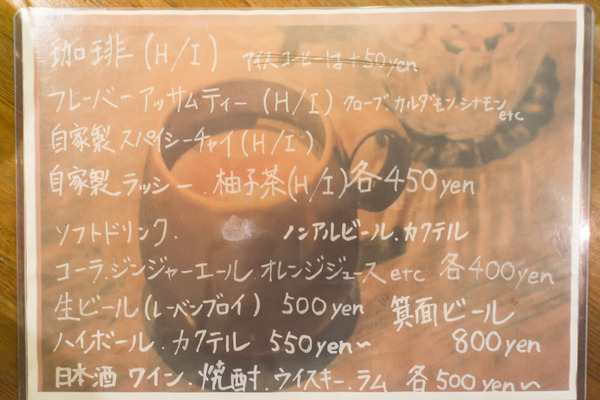 珈琲(H/I) アイスコーヒーは+50yen
フレーバーアッサムティー(H/I) クローブ、カルダモン、シナモンetc
自家製スパイシーチャイ(H/I)
自家製ラッシー、柚子茶(H/I)各450yen
ソフトドリンク、 ノンアルビール、カクテル
コーラ、ジンジャーエール、オレンジジュースetc 各400yen
生ビール(レーベンブロイ) 500yen 箕面ビール
ハイボール、カクテル 550yen〜 800yen
日本酒 ワイン、焼酎、ウイスキー、ラム 各500yen〜